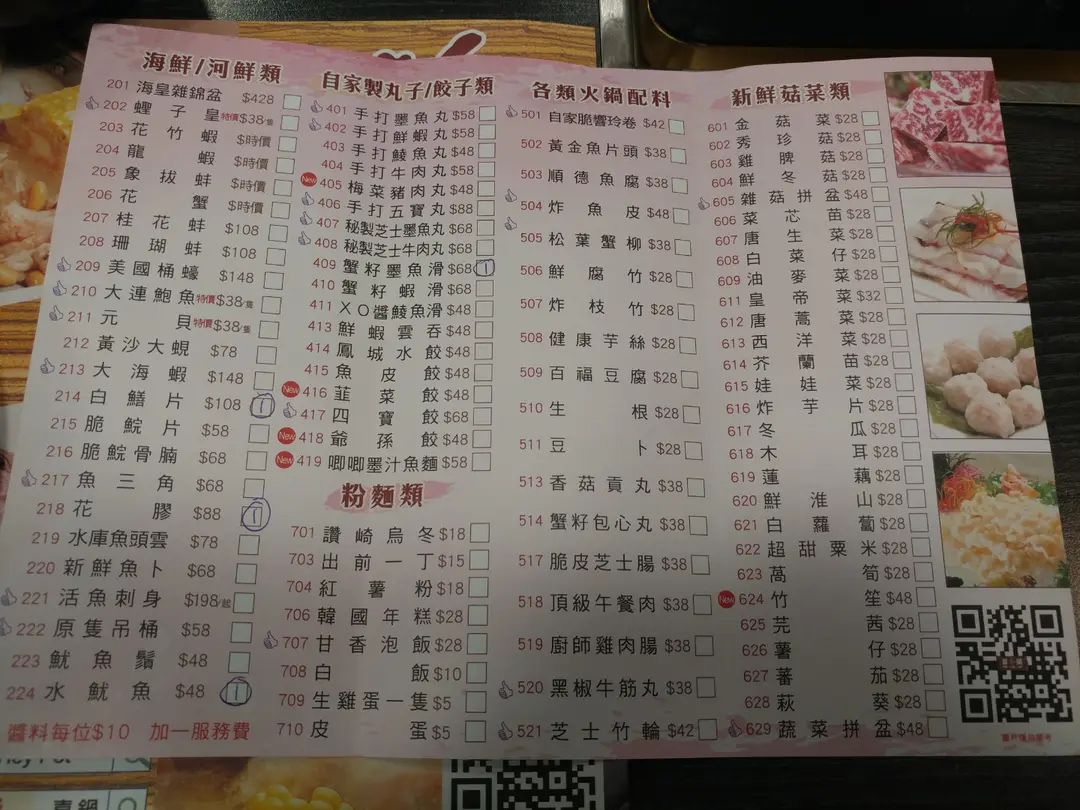 海鮮/河鮮類
201 海皇雜錦盆 $428
202 蟶子皇 特價$38/隻
203 花竹蝦 $時價
204 龍蝦 $時價
205 象拔蚌 $時價
206 花蟹 $時價
207 桂花蚌 $108
208 珊瑚蚌 $108
209 美國桶蠔 $148
210 大連鮑魚 特價$38/隻
211 元貝 特價$38/隻
212 黃沙大蜆 $78
213 大海蝦 $148
214 白鱔片 $108 1
215 脆鯇片 $58
216 脆鯇骨腩 $68
217 魚三角 $68
218 花膠 $88 1
219 水庫魚頭雲 $78
220 新鮮魚卜 $68
221 活魚刺身 $198/起
222 原隻吊桶 $58
223 魷魚鬚 $48
224 水魷魚 $48 1
醬料每位$10 加一服務費
自家製丸子/餃子類
401 手打墨魚丸 $58
402 手打鮮蝦丸 $58
403 手打鯪魚丸 $48
404 手打牛肉丸 $58
New 405 梅菜豬肉丸 $48
406 手打五寶丸 $88
407 秘製芝士墨魚丸 $68
408 秘製芝士牛肉丸 $68
409 蟹籽墨魚滑 $68 1
410 蟹籽蝦滑 $68
411 XO醬鯪魚滑 $48
413 鮮蝦雲吞 $48
414 鳳城水餃 $48
415 魚皮餃 $48
New 416 韮菜餃 $48
417 四寶餃 $68
New 418 爺孫餃 $48
New 419 唧唧墨汁魚麵 $58
粉麵類
701 讚崎烏冬 $18
703 出前一丁 $15
704 紅薯粉 $18
706 韓國年糕 $28
707 甘香泡飯 $28
708 白飯 $10
709 生雞蛋一隻 $5
710 皮蛋 $5
各類火鍋配料
501 自家脆響玲卷 $42
502 黃金魚片頭 $38
503 順德魚腐 $38
504 炸魚皮 $48
505 松葉蟹柳 $38
506 鮮腐竹 $28
507 炸枝竹 $28
508 健康芋絲 $28
509 百福豆腐 $28
510 生根 $28
511 豆卜 $28
513 香菇貢丸 $38
514 蟹籽包心丸 $38
517 脆皮芝士腸 $38
518 頂級午餐肉 $38
519 廚師雞肉腸 $38
520 黑椒牛筋丸 $38
521 芝士竹輪 $42
新鮮菇菜類
601 金菇菜 $28
602 秀珍菇 $28
603 雞脾菇 $28
604 鮮冬菇 $28
605 雜菇拼盆 $48
606 菜芯苗 $28
607 唐生菜 $28
608 白菜仔 $28
609 油麥菜 $28
611 皇帝菜 $32
612 唐蒿菜 $28
613 西洋菜 $28
614 芥蘭苗 $28
615 娃娃菜 $28
616 炸芋片 $28
617 冬瓜 $28
618 木耳 $28
619 蓮藕 $28
620 鮮淮山 $28
621 白蘿蔔 $28
622 超甜粟米 $28
623 萵筍 $28
New 624 竹笙 $48
625 芫茜 $28
626 薯仔 $28
627 蕃茄 $28
628 萩葵 $28
629 蔬菜拼盆 $48
圖片僅供參考
喜鍋